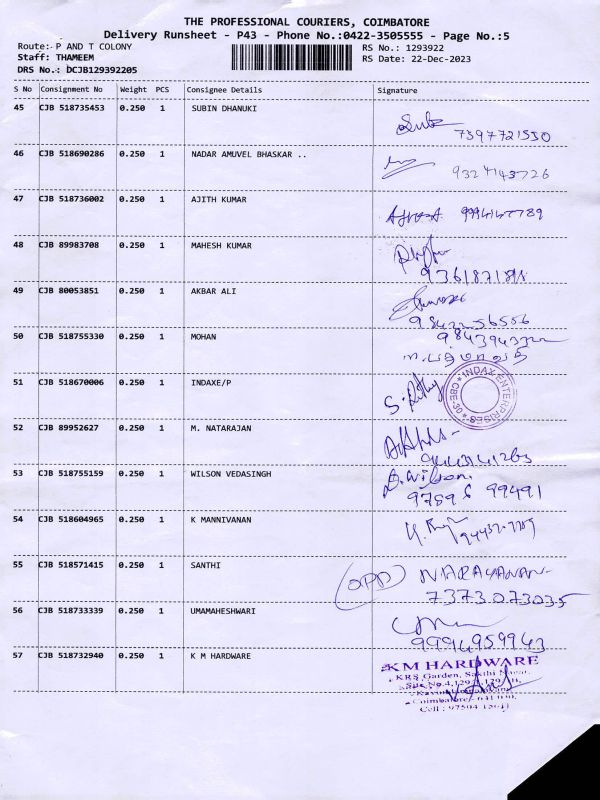 THE PROFESSIONAL COURIERS, COIMBATORE
Delivery Runsheet - P43 - Phone No.:0422-3505555 - Page No.:5
Route: P AND T COLONY
RS No.: 1293922
Staff: THAMEEM
RS Date: 22-Dec-2023
DRS No.: DCJB129392205
S No Consignment No Weight PCS Consignee Details Signature
45 CJB 518735453 0.250 1 SUBIN DHANUKI
7397721530
46 CJB 518690286 0.250 1 NADAR AMUVEL BHASKAR ..
9324143726
47 CJB 518736002 0.250 1 AJITH KUMAR
48 CJB 89983708 0.250 1 MAHESH KUMAR
49 CJB 80053851 0.250 1 AKBAR ALI
50 CJB 518755330 0.250 1 MOHAN
51 CJB 518670006 0.250 1 INDAXE/P
INDAX ENTERPRISES
CBE-30
52 CJB 89952627 0.250 1 M. NATARAJAN
53 CJB 518755159 0.250 1 WILSON VEDASINGH
B. Wilson.
97896 99491
54 CJB 518604965 0.250 1 K MANNIVANAN
55 CJB 518571415 0.250 1 SANTHI
(OPP) NARAYANAN-
7373073035
56 CJB 518733339 0.250 1 UMAMAHESHWARI
9994959943
57 CJB 518732940 0.250 1 K M HARDWARE
K M HARDWARE
KRS Garden, Sakthi Nagar,